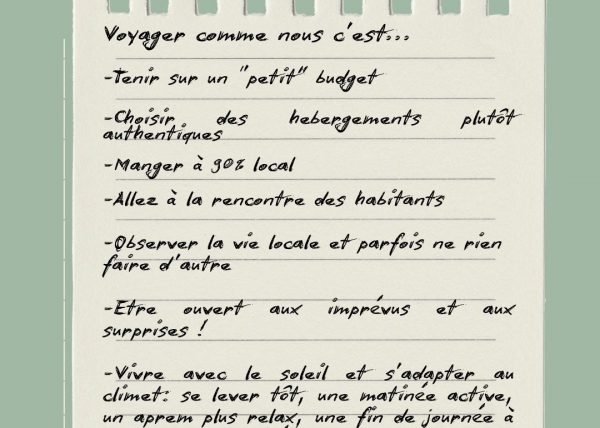 Voyager comme nous c'est...
-Tenir sur un "petit" budget
-Choisir des hebergements plutôt
authentiques
-Manger à 90% local
-Allez à la rencontre des habitants
-Observer la vie locale et parfois ne rien
faire d'autre
-Etre ouvert aux imprévus et aux
surprises !
-Vivre avec le soleil et s'adapter au
climet: se lever tôt, une matinée active,
un aprem plus relax, une fin de journée à